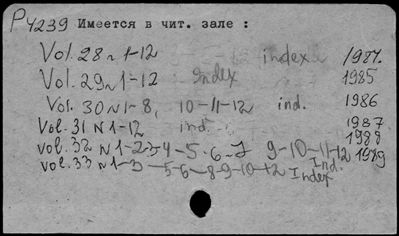 P4239 Имеется в чит. зале :
Vol. 28 N 1-12 index 1984.
Vol. 29 N 1-12 Index 1985
Vol. 30 N 1-8, 10-11-12 ind. 1986
Vol. 31 N 1-12 ind. 1987
vol. 32 N 1-2-3-4-5-6-7 9-10-11-12 Ind. 1988
vol. 33 N 1-3-5-6-8-9-10-12 Index 1989